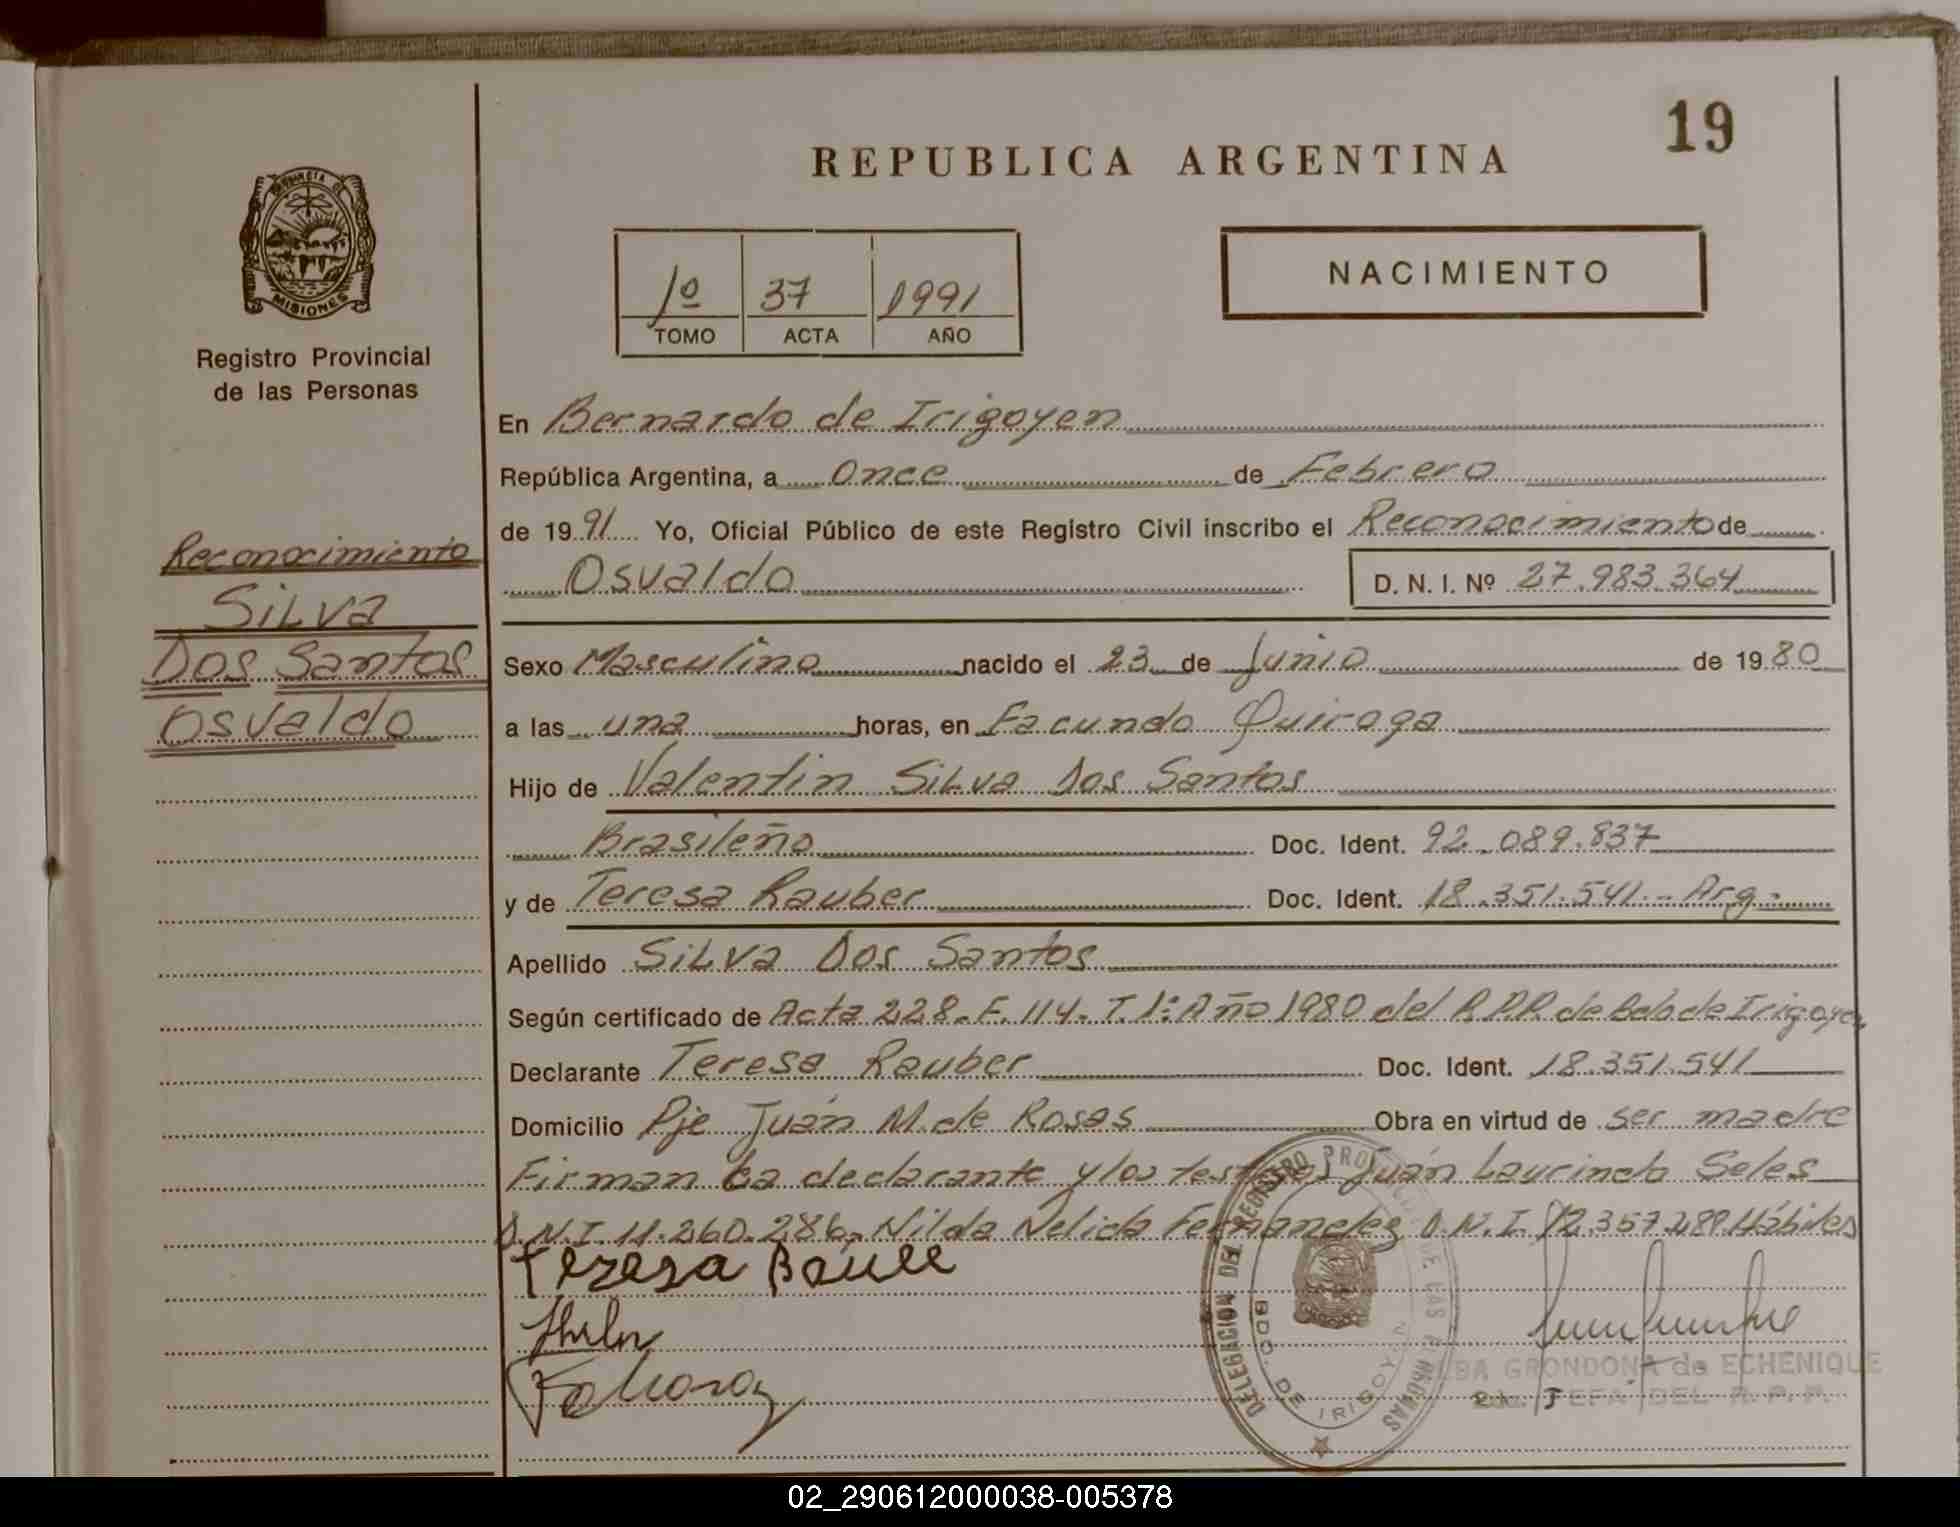 19
REPUBLICA ARGENTINA
PROVINCIA DE
MISIONES
Registro Provincial
de las Personas
1º 37 1991
TOMO ACTA AÑO
NACIMIENTO
Reconocimiento
SiLva
Dos Santos
Osvaldo
En Bernardo de Irigoyen
República Argentina, a Once de Febrero
de 1991 Yo, Oficial Público de este Registro Civil inscribo el Reconocimiento de
Osvaldo D. N. I. Nº 27.983.364
Sexo Masculino nacido el 23 de Junio de 1980
a las una horas, en Facundo Quiroga
Hijo de Valentin SiLva Dos Santos
Brasileño Doc. Ident. 92.089.837
y de Teresa Rauber Doc. Ident. 18.351.541.- Arg.-
Apellido SiLva Dos Santos
Según certificado de Acta 228. F. 114. T. 1: Año 1980 del R.P.P. de Bdo de Irigoyen
Declarante Teresa Rauber Doc. Ident. 18.351.541
Domicilio Pje Juan M. de Rosas Obra en virtud de ser madre
Firman La declarante y los testigos Juan Laurindo Seles
D.N.I. 11.260.286, Nilda Nelida Fernandez D.N.I. 12.357.289 Hábiles
Tereza
DELEGACION DEL REGISTRO PROVINCIAL DE LAS PERSONAS
BDO. DE IRIGOYEN
ELBA GRONDONA de ECHENIQUE
JEFA DEL R. P. P.
02_290612000038-005378